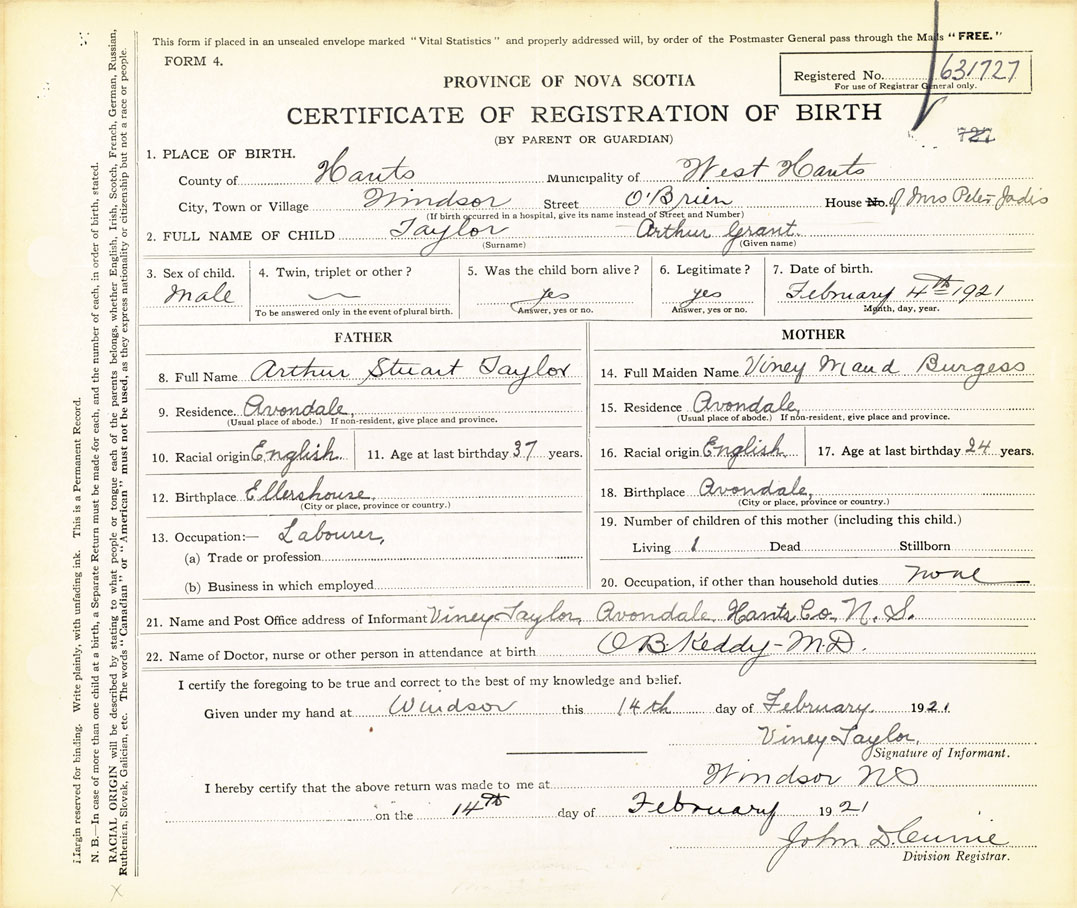 This form if placed in an unsealed envelope marked "Vital Statistics" and properly addressed will, by order of the Postmaster General pass through the Mails "FREE."
FORM 4.
Registered No. 631727
For use of Registrar General only.
PROVINCE OF NOVA SCOTIA
CERTIFICATE OF REGISTRATION OF BIRTH
(BY PARENT OR GUARDIAN)
727
1. PLACE OF BIRTH.
County of Hants Municipality of West Hants
City, Town or Village Windsor Street O'Brien House No. of Mrs Peter Jadis
(If birth occurred in a hospital, give its name instead of Street and Number)
2. FULL NAME OF CHILD Taylor Arthur Grant
(Surname) (Given name)
3. Sex of child. 4. Twin, triplet or other? 5. Was the child born alive? 6. Legitimate? 7. Date of birth.
Male yes yes February 4th 1921
To be answered only in the event of plural birth. Answer, yes or no. Answer, yes or no. Month, day, year.
FATHER
8. Full Name Arthur Stuart Taylor
9. Residence. Avondale,
(Usual place of abode.) If non-resident, give place and province.
10. Racial origin English 11. Age at last birthday 37 years.
12. Birthplace Ellershouse,
(City or place, province or country.)
13. Occupation:— Labourer,
(a) Trade or profession
(b) Business in which employed
MOTHER
14. Full Maiden Name Viney Maud Burgess
15. Residence Avondale,
(Usual place of abode.) If non-resident, give place and province.
16. Racial origin English 17. Age at last birthday 24 years.
18. Birthplace Avondale,
(City or place, province or country.)
19. Number of children of this mother (including this child.)
Living 1 Dead Stillborn
20. Occupation, if other than household duties none
21. Name and Post Office address of Informant Viney Taylor, Avondale Hants Co. N. S.
22. Name of Doctor, nurse or other person in attendance at birth O B Keddy - M.D.
I certify the foregoing to be true and correct to the best of my knowledge and belief.
Given under my hand at Windsor this 14th day of February 1921.
Viney Taylor,
Signature of Informant.
I hereby certify that the above return was made to me at Windsor NS
on the 14th day of February 1921
John D. Currie
Division Registrar.
Margin reserved for binding. Write plainly, with unfading ink. This is a Permanent Record.
N. B.—In case of more than one child at a birth, a Separate Return must be made for each, and the number of each, in order of birth, stated.
RACIAL ORIGIN will be described by stating to what people or tongue each of the parents belongs, whether English, Irish, Scotch, French, German, Russian,
Ruthenien, Slovak, Galician, etc. The words "Canadian" or "American" must not be used, as they express nationality or citizenship but not a race or people.